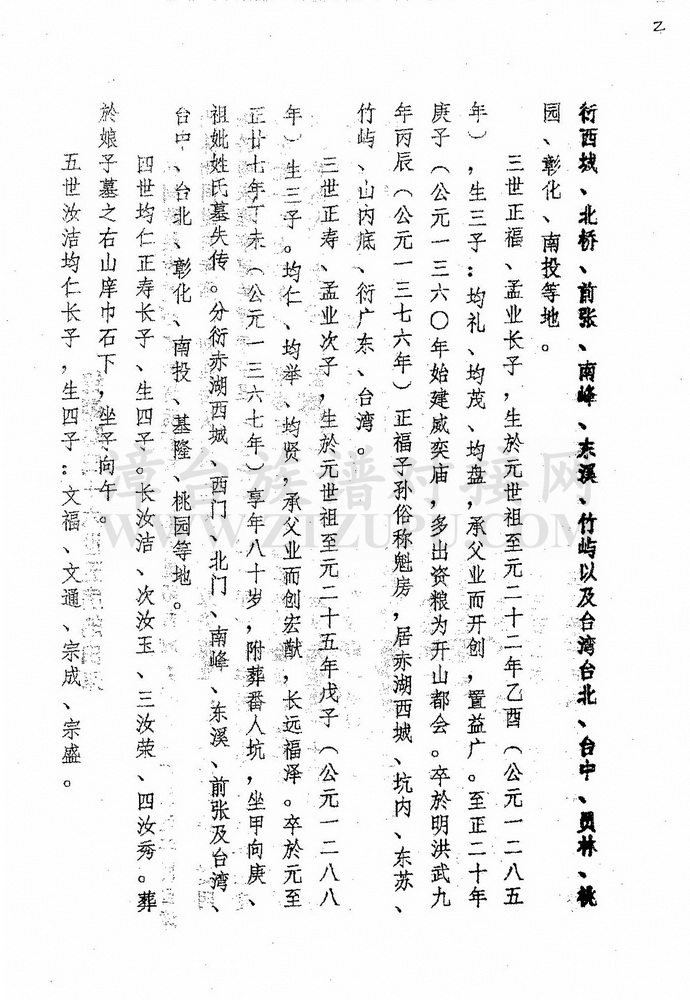 2
衍西城、北桥、前张、南峰、东溪、竹屿以及台湾台北、台中、员林、桃
园、彰化、南投等地。
三世正福、孟业长子，生於元世祖至元二十二年乙酉（公元一二八五
年），生三子：均礼、均茂、均盘，承父业而开创，置益广。至正二十年
庚子（公元一三六〇年始建威奕庙，多出资粮为开山都会。卒於明洪武九
年丙辰（公元一三七六年）正福子孙俗称魁房，居赤湖西城、坑内、东苏、
竹屿、山内底、衍广东、台湾。
三世正寿、孟业次子，生於元世祖至元二十五年戊子（公元一二八八
年）生三子。均仁、均举、均贤，承父业而创宏猷，长远福泽。卒於元至
正廿七年丁未（公元一三六七年）享年八十岁，附葬番人坑，坐甲向庚、
祖妣姓氏墓失传。分衍赤湖西城、西门、北门、南峰、东溪、前张及台湾、
台中、台北、彰化、南投、基隆、桃园等地。
四世均仁正寿长子、生四子。长汝洁、次汝玉、三汝荣、四汝秀。葬
於娘子墓之右山庠巾石下，坐子向午。
五世汝洁均仁长子，生四子：文福、文通、宗成、宗盛。
漳台族谱对接网
WWW.ZIZUPU.COM